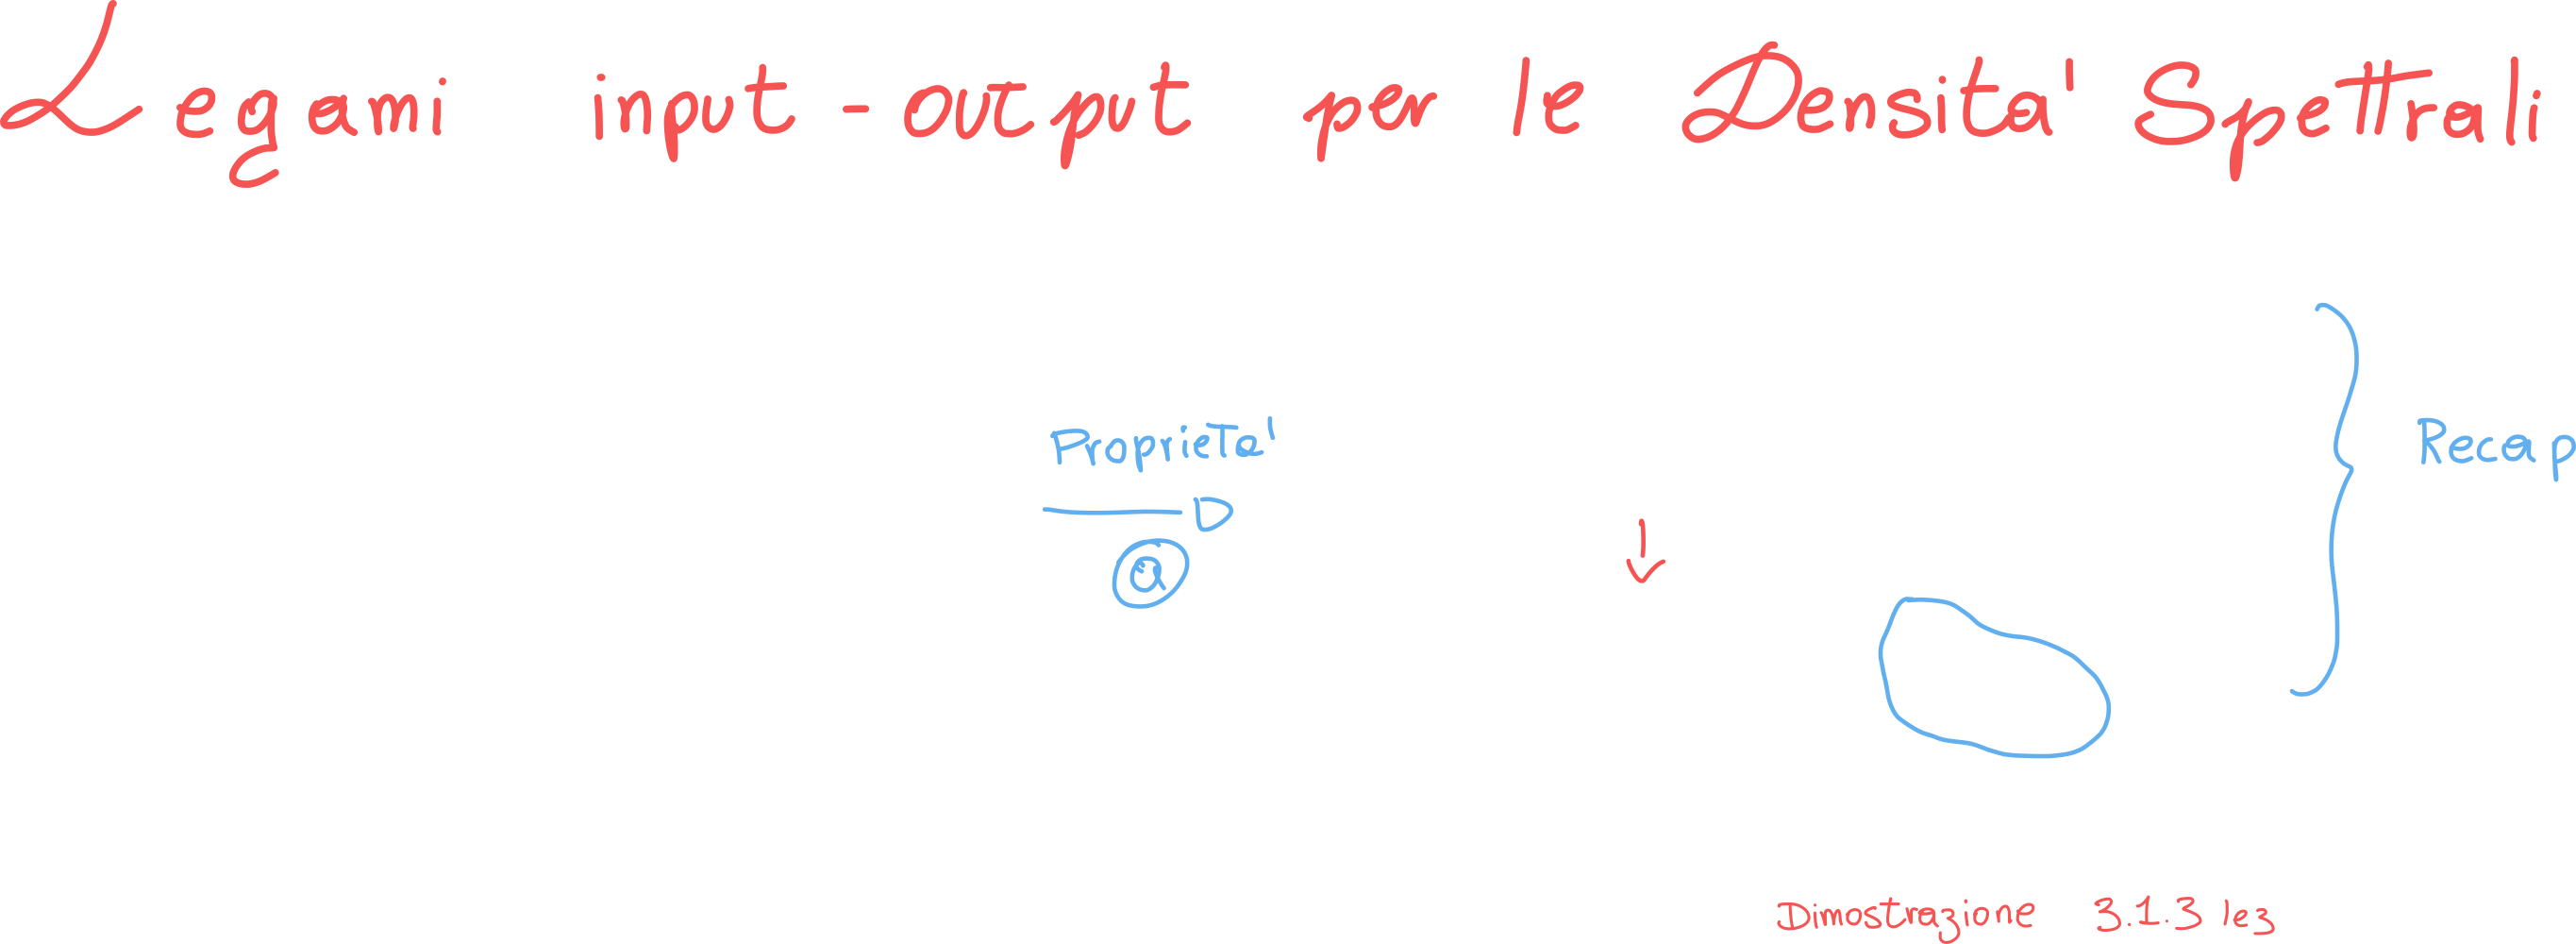 Legami input-output per le Densita' Spettrali
Proprieta'
Recap
a
Dimostrazione 3.1.3 lez